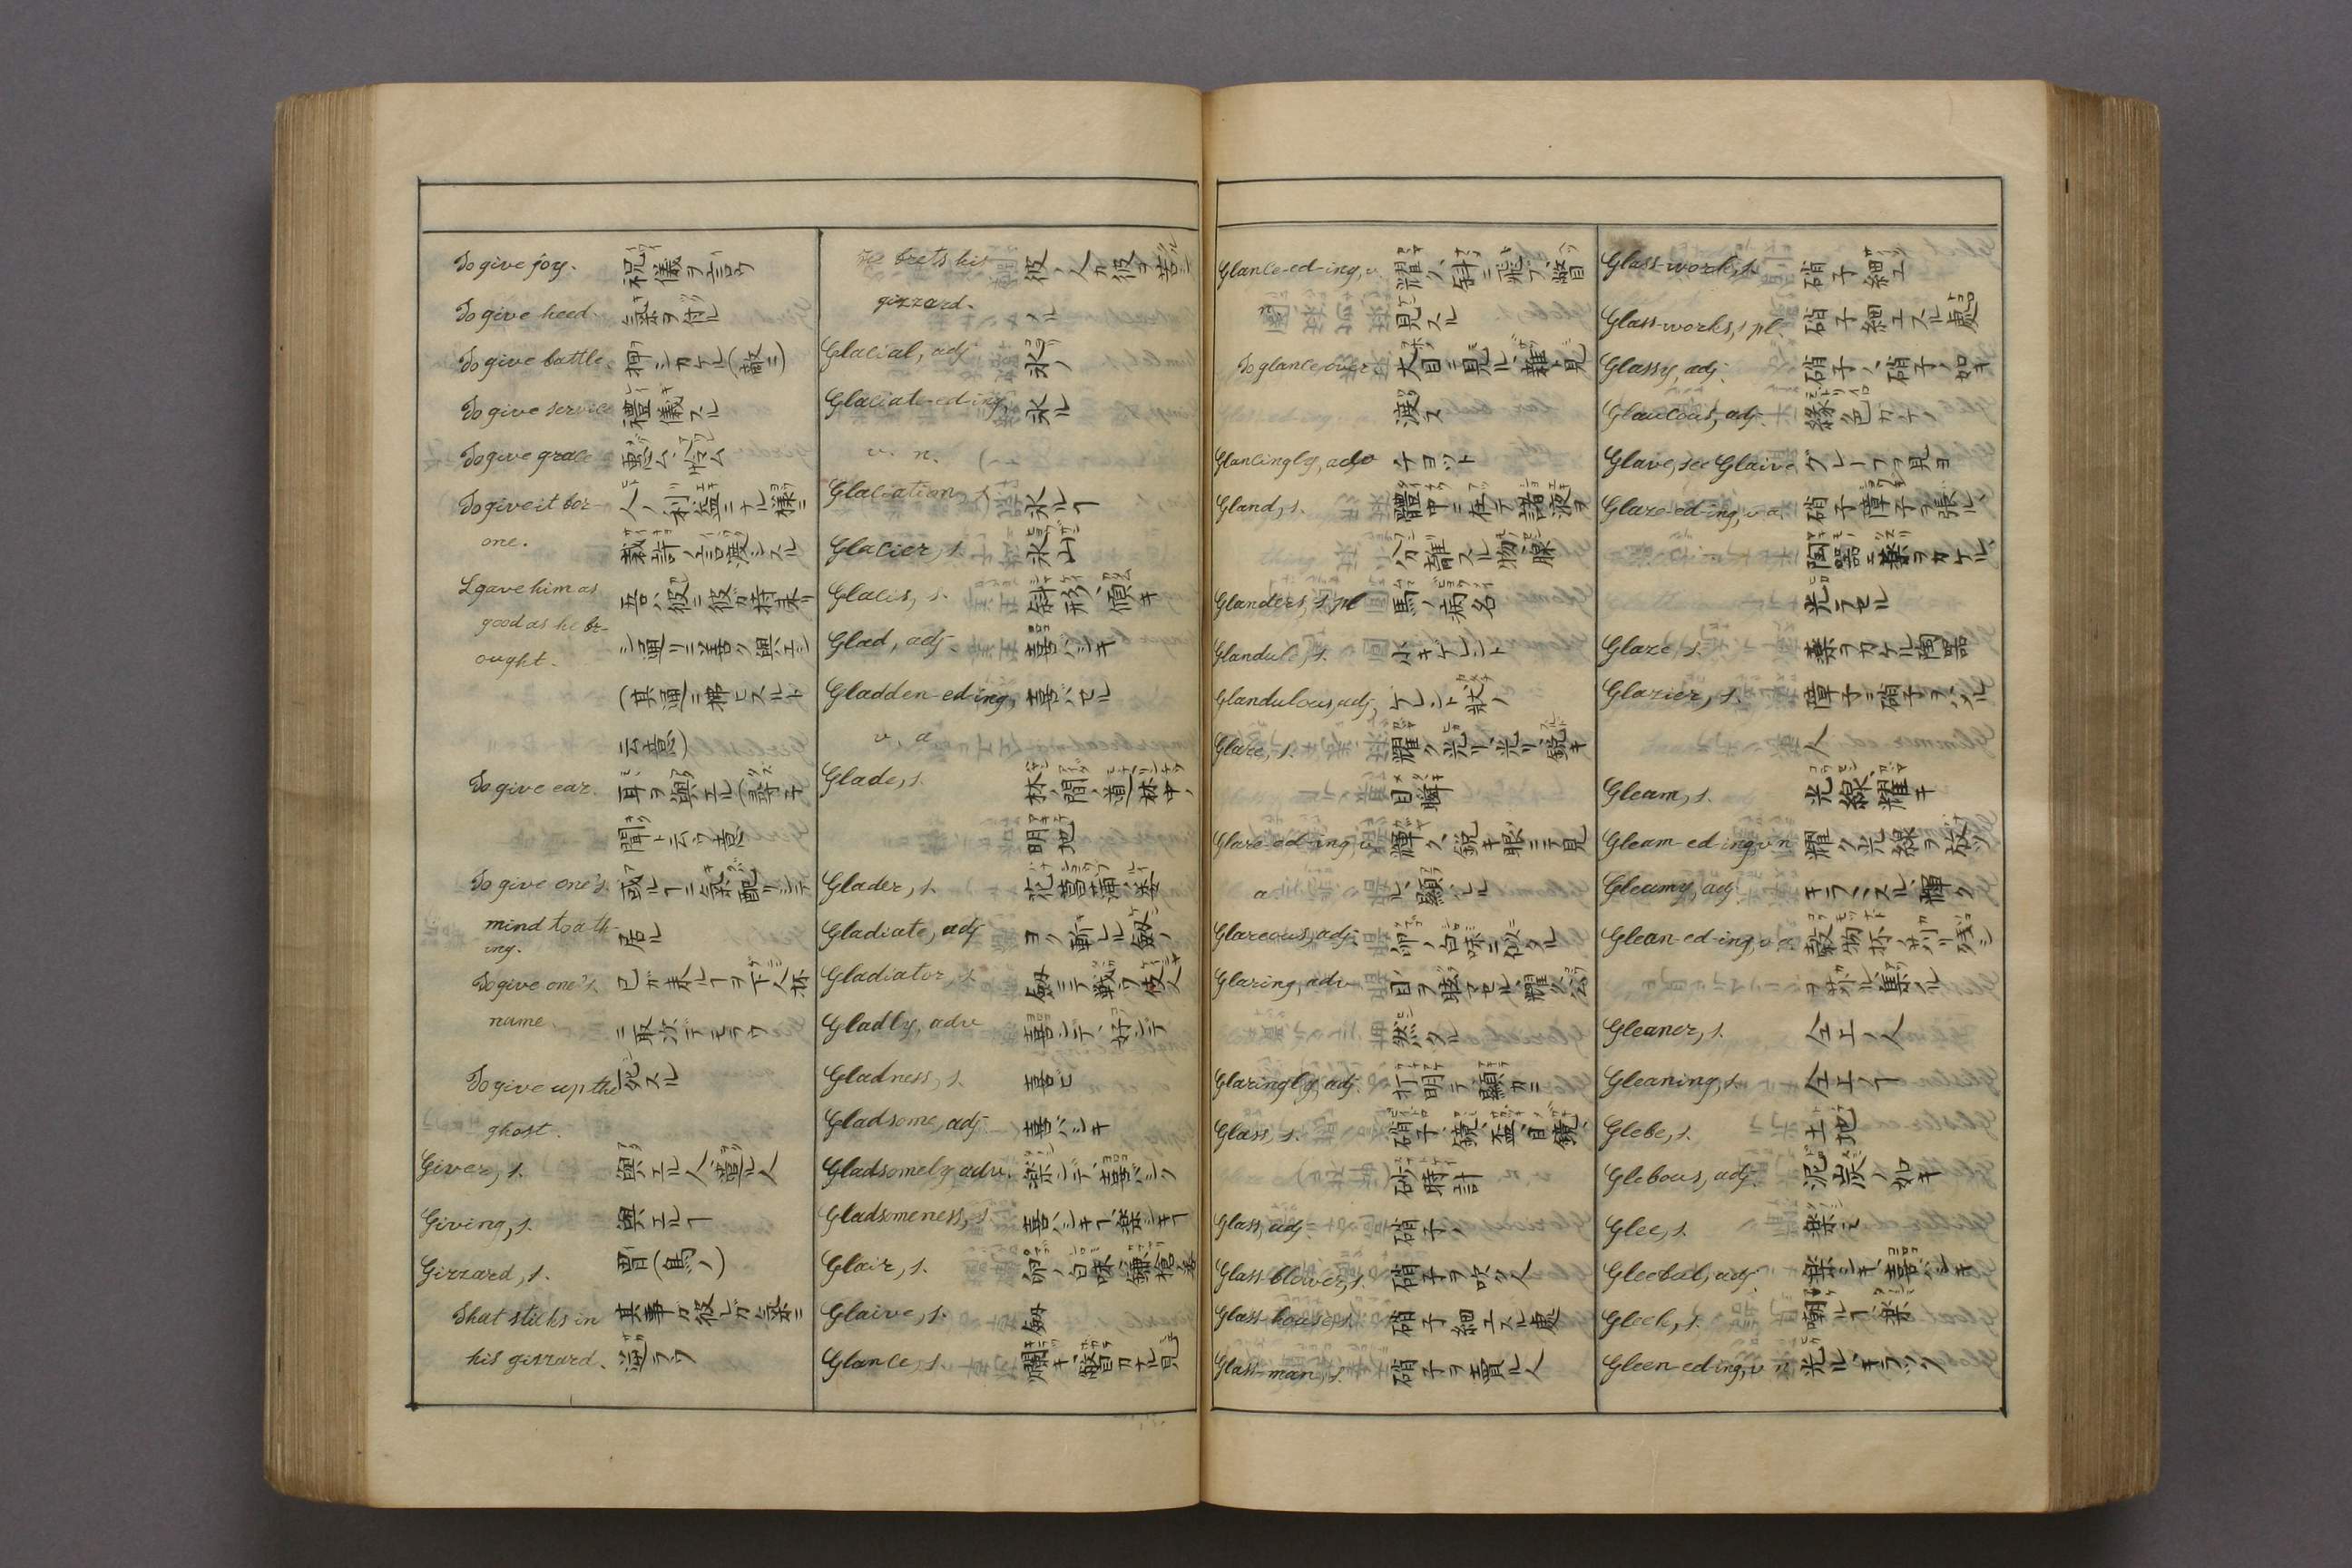 To give joy. 祝儀ヲ言フ
To give heed. 気ヲ付ル
To give battle. 押シカケル(敵ニ)
To give service 禮儀スル
To give grace 恵ム、
To give it for 人ノ利益ニナル様ニ
one. 裁許ノ言渡シスル
I gave him as 吾ハ彼ニ彼カ持来リ
good as he br-
ought. シ通リニ善ク與エシ
(其通ニ拂ヒスルト
云意)
To give ear. 耳ヲ與エル(
聞クト云フ意
To give one's 或ルヿニ気配リシテ
mind to a th- 居ル
ing.
To give one's 己ガ来ルヿヲ下人杯
name. ニ取次デモラフ
To give up the 死スル
ghost.
Giver, s. 與エル人、
Giving, s. 與エルヿ
Gizzard, s. 胃(鳥ノ)
That sticks in 其事ガ彼レガ気ニ
his gizzard. 逆ラフ
He frets his 彼ノ人ガ彼ヲ苦シ
gizzard. メル
Glacial, adj 氷ノ
Glaciate-ed-ing, 氷ル
v. n.
Glaciation, s. 氷ルヿ
Glacier, s. 氷山
Glacis, s. 斜形、傾キ
Glad, adj. 喜バシキ
Gladden-ed-ing, 喜バセル
v. a
Glade, s. 林ノ間ノ道、林中ノ
明地
Glader, s. 花菖蒲ノ类
Gladiate, adj 劔ノ
Gladiator, s. 劔ニテ戦フ
Gladly, adv 喜ンデ、好ンデ
Gladness, s. 喜ビ
Gladsome, adj. 喜バシキ
Gladsomely, adv. 楽シンデ、喜バシク
Gladsomeness, s. 喜バシキヿ、楽シキヿ
Glair, s. 卵ノ白味、
Glaive, s. 劔
Glance, s. 爛キ、瞥カナル見
Glance-ed-ing, v. 耀ク、斜ニ飛ブ、瞥
n 見スル
To glance over 大目ニ見ル、雑ト見
渡ス
Glancingly, adv チョット
Gland, s. 體中ニ在テ諸液ヲ
分離スル物、腺
Glanders, s. pl 馬ノ病名
Glandule, s. 小キゲレンド
Glandulous, adj. ゲレンド状ノ
Glare, s. 耀ク光リ、光リ、鋭キ
目
Glare-ed-ing, v. 輝ク、鋭キ眼ニテ見
a. ル、顕ハレル
Glareous, adj. 卵ノ白味ニ似タル
Glaring, adv 目ヲ眩マセル、耀ク、公
然タル
Glaringly, adj. 打明テ、顕カニ
Glass, s. 硝子、鏡、盃、目鏡、
砂時計
Glass, adj 硝子ノ
Glass-blower, s. 硝子ヲ吹ク人
Glass-house, s. 硝子細工スル處
Glass-man, s. 硝子ヲ賣ル人
Glass-work, s. 硝子細工
Glass-works, s pl. 硝子細工スル處
Glassy, adj. 硝子ノ、硝子ノ如キ
Glaucous, adj. 緑色ガヽリノ
Glave, see Glaive グレーフヲ見ヨ
Glaze-ed-ing, v a. 硝子障子ヲ張ル、
陶器ニ薬ヲカケル、
光ラセル
Glaze, s. 薬ヲカケル陶器
Glazier, s. 障子ニ硝子ヲハメル
人
Gleam, s. 光線、耀キ
Gleam-ed-ing, v n 耀ク、光線ヲ放ツ
Gleamy, adj. チラヽヽスル、輝ク
Glean-ed-ing, v a. 穀物杯ノ刈リ残シ
ヲ集メル
Gleaner, s. 仝上ノ人
Gleaning, s. 仝上ノヿ
Glebe, s. 土地
Glebous, adj. 泥炭ノ如キ
Glee, s. 楽ミ
Gleeful, adj 楽シキ、喜バシキ
Gleek, s. 嘲ルヿ、楽
Gleen-ed-ing, v n 光ル、キラツク